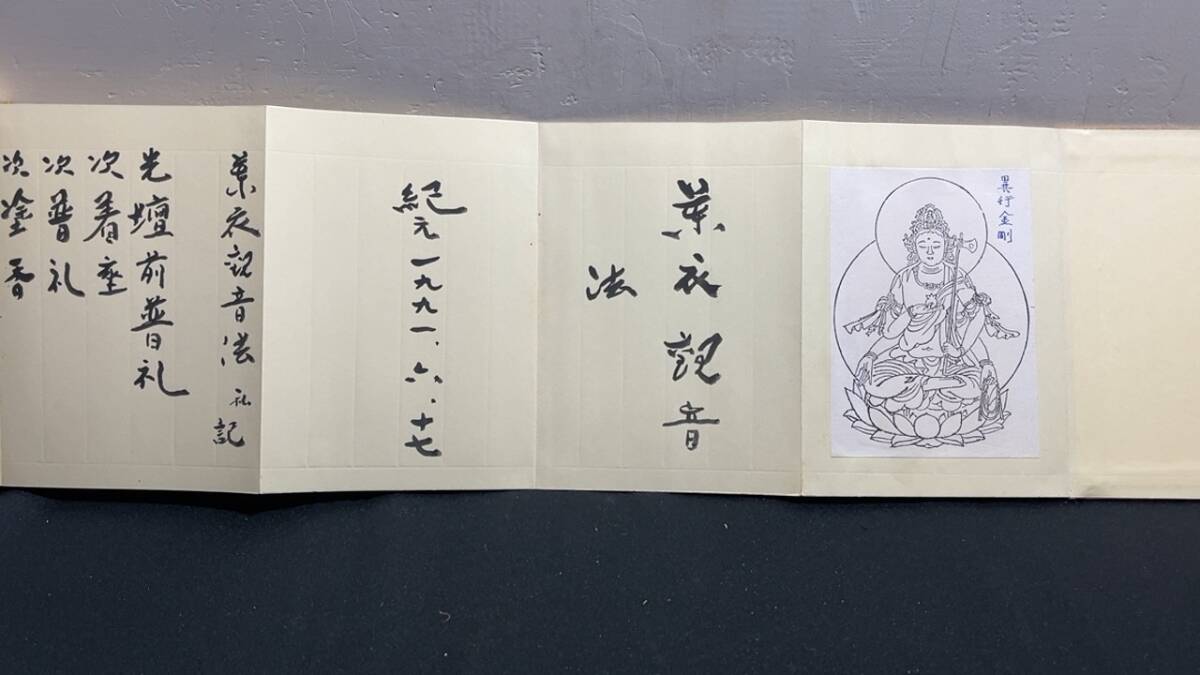 異行金剛
葉衣觀音
法
紀元一九九一、六、十七
葉衣觀音法 私記
先壇前普礼
次着座
次普礼
次塗香